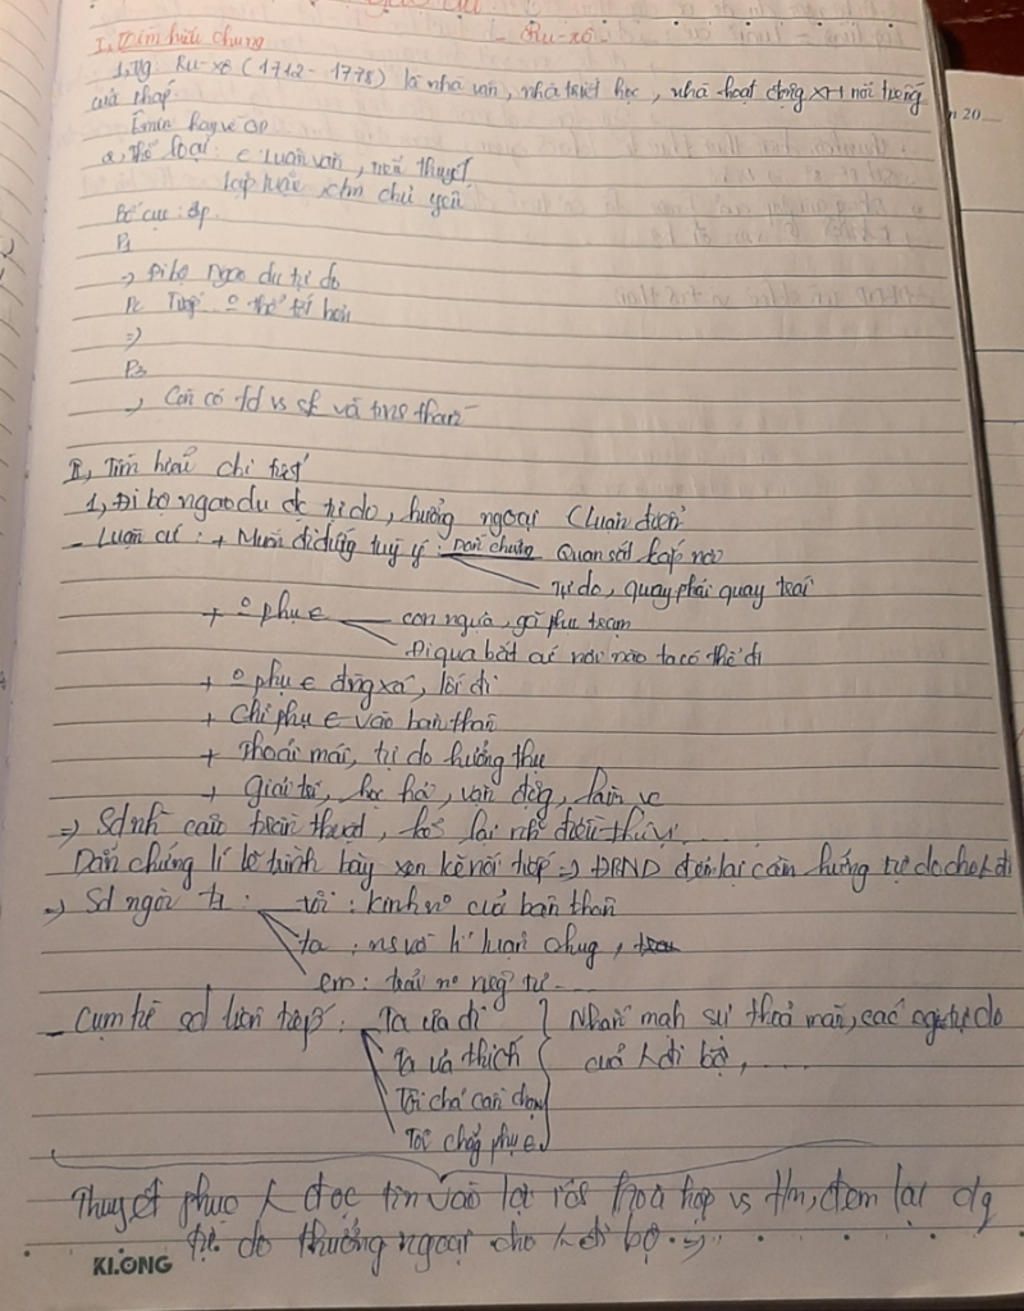 I, Tìm hiểu chung - Ru-xô -
1, Tg: Ru-xô (1712 - 1778) là nhà văn, nhà triết học, nhà hoạt động XH nổi tiếng
của Pháp.
Êmin hay về GD
a, Thể loại: € Luận văn, tiểu thuyết
lập luận chm chủ yếu
Bố cục: 3p.
P1
→ Đi bộ ngao du tự do
P2 Tiếp
=>
P3
→ Còn có td vs sk và tinh thần
II, Tìm hiểu chi tiết
1, Đi bộ ngao du đc tự do, thưởng ngoại (luận điểm
- Luận cứ: + Muốn đi dừng tuỳ ý: Dẫn chứng Quan sát khắp nơi
Tự do, quay phải quay trái
+ o phụ € con ngựa, gã phu trạm
Đi qua bất cứ nơi nào ta có thể đi
+ o phụ € đng xá, lối đi
+ Chỉ phụ € vào bản thân
+ Thoải mái, tự do hưởng thụ
+ Giải trí, học hỏi, vận động, làm vc
=> Sd nh câu trần thuật, kể lại nh điều thú vị
Dẫn chứng lí lẽ trình bày xen kẽ nối tiếp => ĐBND đem lại cảm hứng tự do cho đi
=> Sd ngôi t1: tôi: kinh no của bản thân
ta: lí luận chug,
em:
- Cụm từ sd liên tiếp: Ta ưa đi } Nhấn mạh sự thoả mãn, các tự do
Ta ưa thích của đi bộ, ....
Tôi chả cần chọn
Tôi chẳng phụ €
Thuyết phục đọc tin vào lợi hoà hợp vs thn, đem lại
tự do thưởng ngoại cho đi bộ.
KLONG